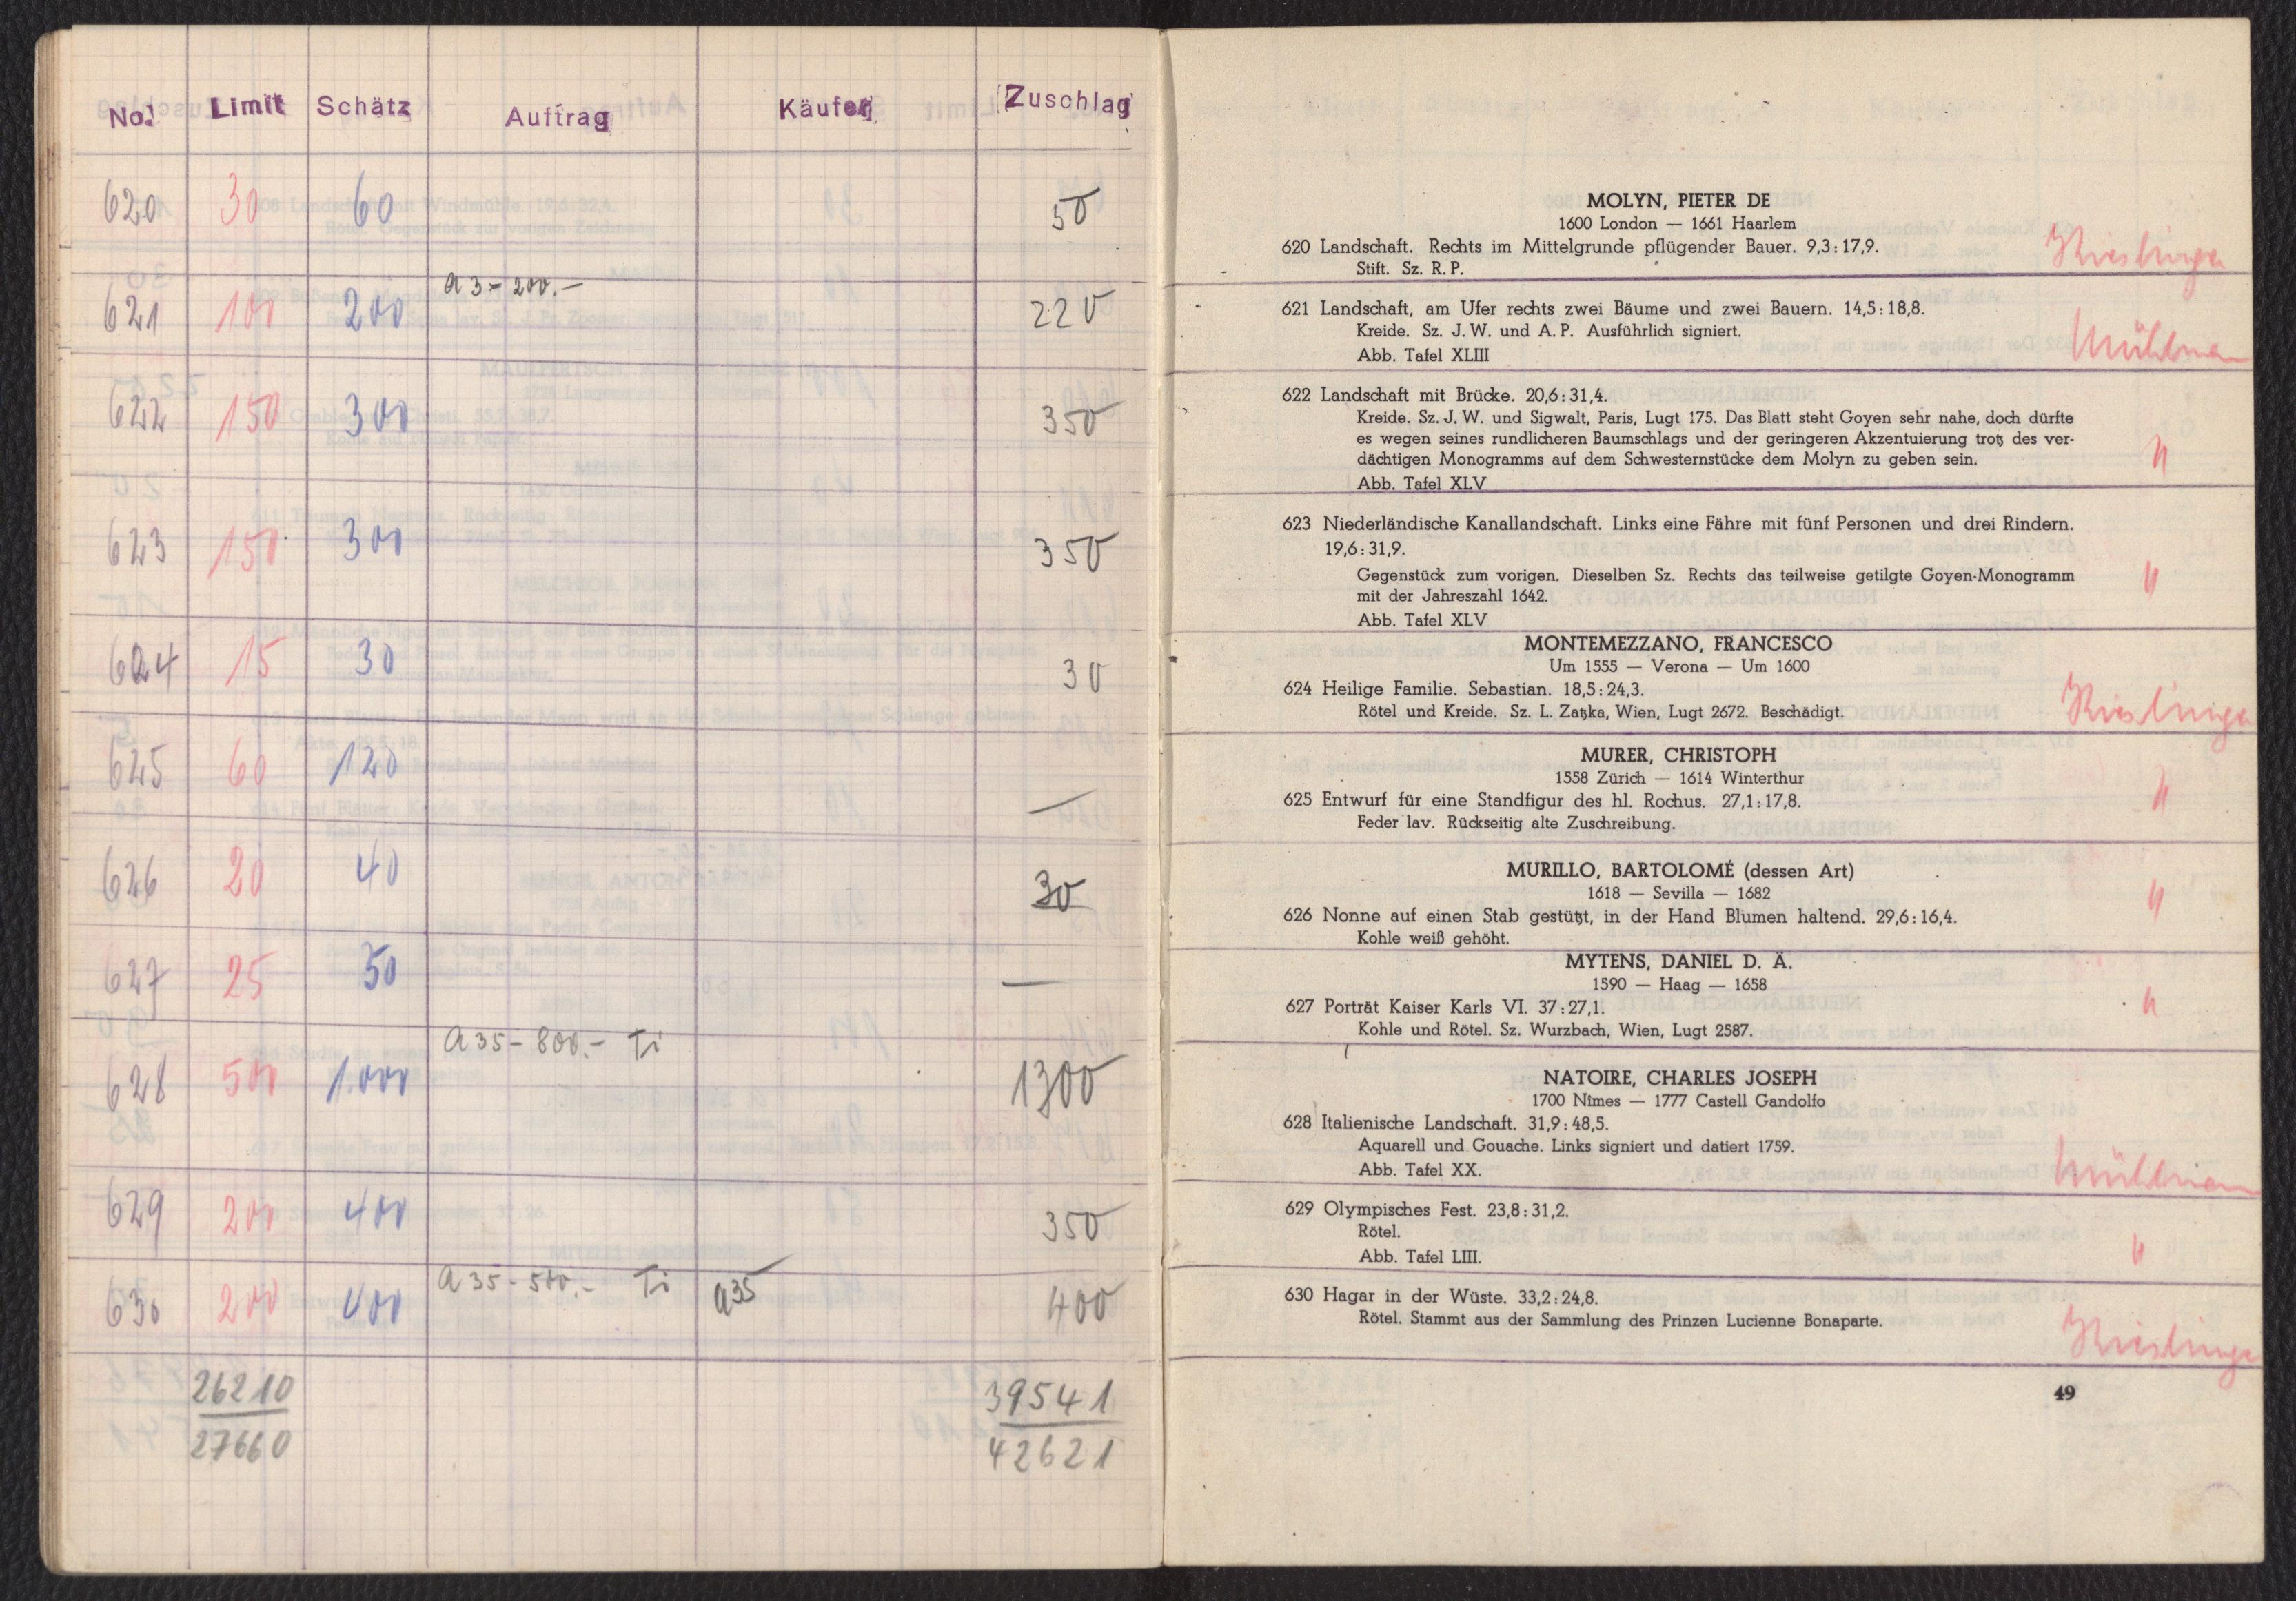 No. Limit Schätz Auftrag Käufer Zuschlag
620 30 60 50
621 100 200 a 3 - 200.- 220
622 150 300 350
623 150 300 350
624 15 30 30
625 60 120 —
626 20 40 30
627 25 50 —
628 500 1.000 a 35 - 800.- Ti 1300
629 200 400 350
630 200 400 a 35 - 500.- Ti a35 400
26210 39541
27660 42621
MOLYN, PIETER DE
1600 London — 1661 Haarlem
620 Landschaft. Rechts im Mittelgrunde pflügender Bauer. 9,3 : 17,9.
Stift. Sz. R. P.
621 Landschaft, am Ufer rechts zwei Bäume und zwei Bauern. 14,5 : 18,8.
Kreide. Sz. J. W. und A. P. Ausführlich signiert.
Abb. Tafel XLIII
622 Landschaft mit Brücke. 20,6 : 31,4.
Kreide. Sz. J. W. und Sigwalt, Paris, Lugt 175. Das Blatt steht Goyen sehr nahe, doch dürfte
es wegen seines rundlicheren Baumschlags und der geringeren Akzentuierung trotz des ver-
dächtigen Monogramms auf dem Schwesternstücke dem Molyn zu geben sein.
"
Abb. Tafel XLV
623 Niederländische Kanallandschaft. Links eine Fähre mit fünf Personen und drei Rindern.
19,6 : 31,9.
Gegenstück zum vorigen. Dieselben Sz. Rechts das teilweise getilgte Goyen-Monogramm "
mit der Jahreszahl 1642.
Abb. Tafel XLV
MONTEMEZZANO, FRANCESCO
Um 1555 — Verona — Um 1600
624 Heilige Familie. Sebastian. 18,5 : 24,3.
Rötel und Kreide. Sz. L. Zatzka, Wien, Lugt 2672. Beschädigt.
MURER, CHRISTOPH
1558 Zürich — 1614 Winterthur
625 Entwurf für eine Standfigur des hl. Rochus. 27,1 : 17,8. "
Feder lav. Rückseitig alte Zuschreibung.
MURILLO, BARTOLOMÉ (dessen Art)
1618 — Sevilla — 1682 "
626 Nonne auf einen Stab gestützt, in der Hand Blumen haltend. 29,6 : 16,4.
Kohle weiß gehöht.
MYTENS, DANIEL D. Ä.
1590 — Haag — 1658
627 Porträt Kaiser Karls VI. 37 : 27,1. "
Kohle und Rötel. Sz. Wurzbach, Wien, Lugt 2587.
NATOIRE, CHARLES JOSEPH
1700 Nîmes — 1777 Castell Gandolfo
628 Italienische Landschaft. 31,9 : 48,5.
Aquarell und Gouache. Links signiert und datiert 1759.
Abb. Tafel XX.
629 Olympisches Fest. 23,8 : 31,2.
Rötel. "
Abb. Tafel LIII.
630 Hagar in der Wüste. 33,2 : 24,8.
Rötel. Stammt aus der Sammlung des Prinzen Lucienne Bonaparte.
49